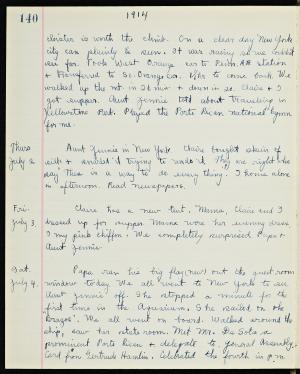 140
1914
cloister is worth the climb. On a clear day New York
city can plainly be seen. It was rainy so we couldn't
see far. Took West Orange car to Penn. RR station
+ transferred to So. Orange car. 1/2 hr to come back. We
walked up the mt. in 31 min + down in 20. Claire + I
got supper. Aunt Jennie told about traveling in
Yellowstone Park. Played the Porto Rican national hymn
for me.
Thurs
July 2.
Aunt Jennie in New York. Claire bought skein of
silk + snarled it trying to undo it. They are right who
say there is a way to do every thing. I home alone
in afternoon. Read newspapers.
Fri.
July 3.
Claire has a new tent. Mama, Claire and I
dressed up for supper. Mama wore her evening dress
I my pink chiffon. We completely surprised Papa +
Aunt Jennie
Sat.
July 4.
Papa ran his big flag (new) out the guest room
window today. We all went to New York to see
Aunt Jennie off. She stopped a minute for the
first time in the Aquarium. She sailed on the
"Brazos". We all went on board. Walked around the
ship, saw her state room. Met Mr. De Sola a
prominent Porto Rican + delegate to general assembly.
Card from Gertrude Hamlin. Celebrated the fourth in p.m.